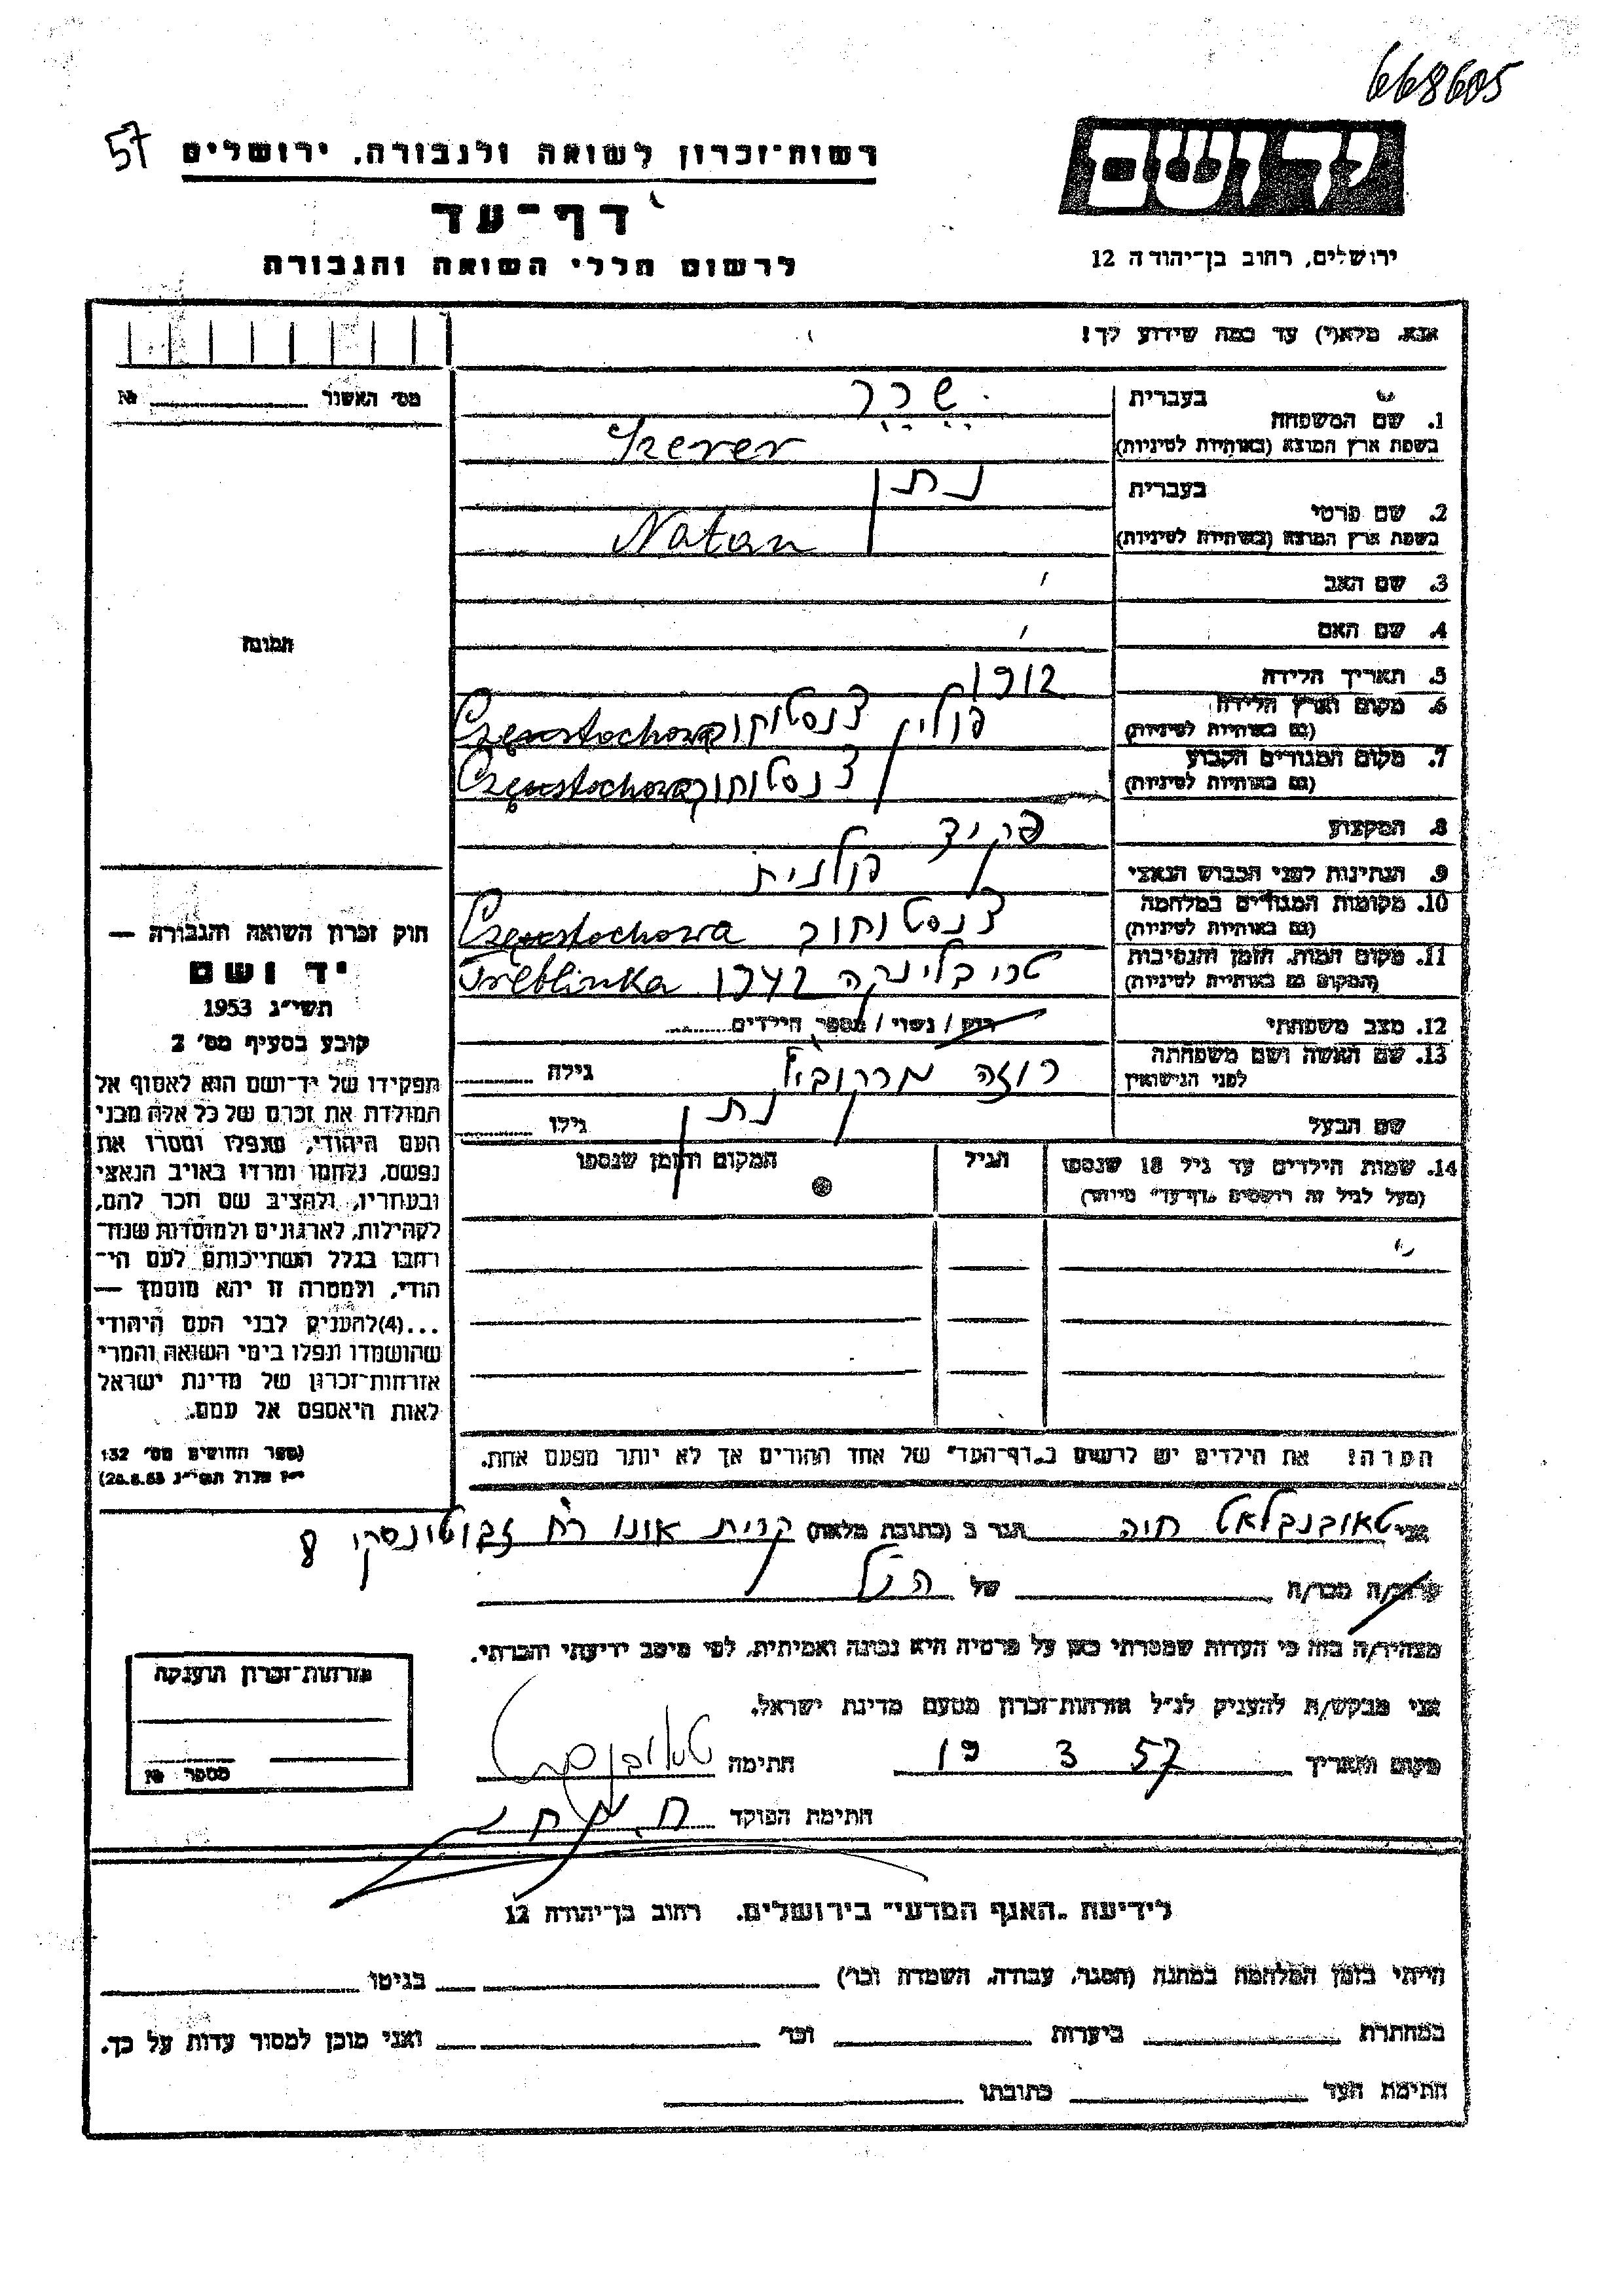 668605
57
רשות-זכרון לשואה ולגבורה, ירושלים
יד ושם
דף-עד
ירושלים, רחוב בן-יהודה 12
לרשום חללי השואה והגבורה
אנא, מלא(י) עד כמה שידוע לך!
מס' האשור №
1. שם המשפחה בעברית שרר
בשפת ארץ המוצא (באותיות לטיניות) Szerer
2. שם פרטי בעברית נתן
בשפת ארץ המוצא (באותיות לטיניות) Natan
3. שם האב
4. שם האם
תמונה
5. תאריך הלידה 1912
6. מקום וארץ הלידה (גם באותיות לטיניות) פולין צ'נסטוחוב Częnstochowa
7. מקום המגורים הקבוע (גם באותיות לטיניות) צ'נסטוחוב Częnstochowa
8. המקצוע פקיד
9. הנתינות לפני הכבוש הנאצי פולנית
10. מקומות המגורים במלחמה (גם באותיות לטיניות) צ'נסטוחוב Częnstochowa
11. מקום המות, הזמן והנסיבות (המקום גם באותיות לטיניות) טרבלינקה 1942 Treblinka
12. מצב משפחתי רווק / נשוי / מספר הילדים
13. שם האשה ושם משפחתה לפני הנישואין רוזה גילה
שם הבעל נתן גילו
14. שמות הילדים עד גיל 18 שנספו (מעל לגיל זה רושמים "דף-עד" מיוחד) הגיל המקום והזמן שנספו
הערה! את הילדים יש לרשום ב"דף-העד" של אחד ההורים אך לא יותר מפעם אחת.
חוק זכרון השואה והגבורה —
יד ושם
תשי"ג 1953
קובע בסעיף מס' 2
תפקידו של יד-ושם הוא לאסוף אל
המולדת את זכרם של כל אלה מבני
העם היהודי, שנפלו ומסרו את
נפשם, נלחמו ומרדו באויב הנאצי
ובעוזריו, ולהציב שם וזכר להם,
לקהילות, לארגונים ולמוסדות שנח-
רבו בגלל השתייכותם לעם הי-
הודי, ולמטרה זו יהא מוסמך —
...(4) להעניק לבני העם היהודי
שהושמדו ונפלו בימי השואה והמרי
אזרחות-זכרון של מדינת ישראל
לאות היאספם אל עמם.
(ספר החוקים מס' 132
י"ז אלול תשי"ג 28.8.53)
אני טאובנבלאט חיה הגר ב (כתובת מלאה) קרית אונו רח' ז'בוטינסקי 8
קרוב/ה מכר/ה של הנ"ל
מצהיר/ה בזה כי העדות שמסרתי כאן על פרטיה היא נכונה ואמיתית, לפי מיטב ידיעתי והכרתי.
אני מבקש/ת להעניק לנ"ל אזרחות-זכרון מטעם מדינת ישראל.
מקום ותאריך 19 3 57 חתימה
חתימת הפוקד
אזרחות-זכרון הוענקה
מספר №
לידיעת "האגף המדעי" בירושלים, רחוב בן-יהודה 12
הייתי בזמן המלחמה במחנה (הסגר, עבודה, השמדה וכו') בגיטו
במחתרת ביערות וכו' ואני מוכן למסור עדות על כך.
חתימת העד כתובתו